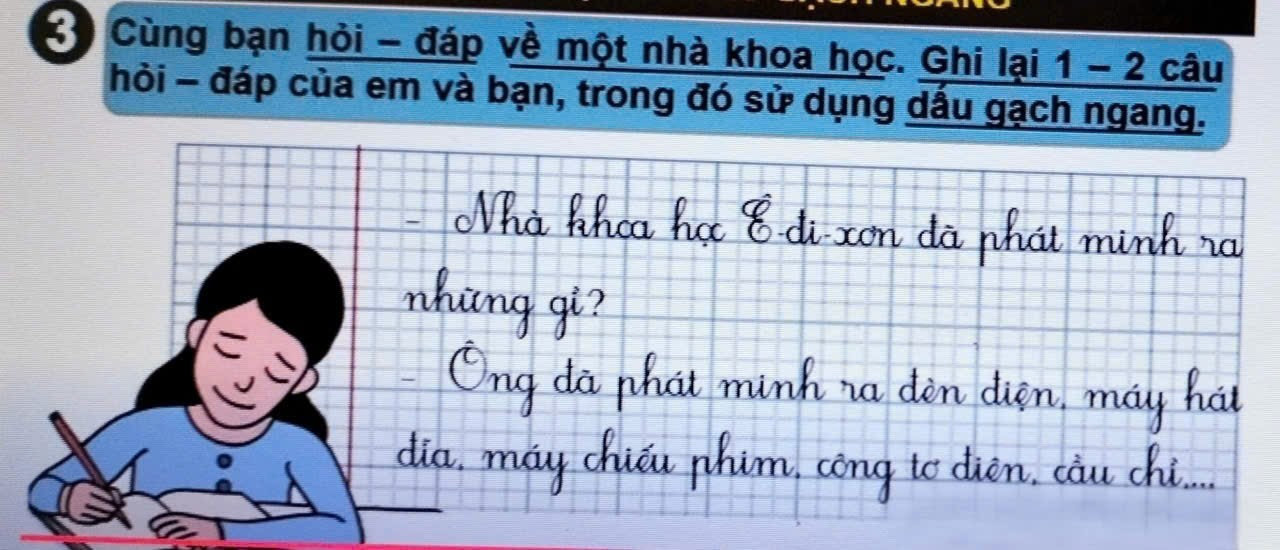 3 Cùng bạn hỏi – đáp về một nhà khoa học. Ghi lại 1 – 2 câu
hỏi – đáp của em và bạn, trong đó sử dụng dấu gạch ngang.
- Nhà khoa học Ê-đi-xơn đã phát minh ra
những gì?
- Ông đã phát minh ra đèn điện, máy hát
đĩa, máy chiếu phim, công tơ điện, cầu chì....